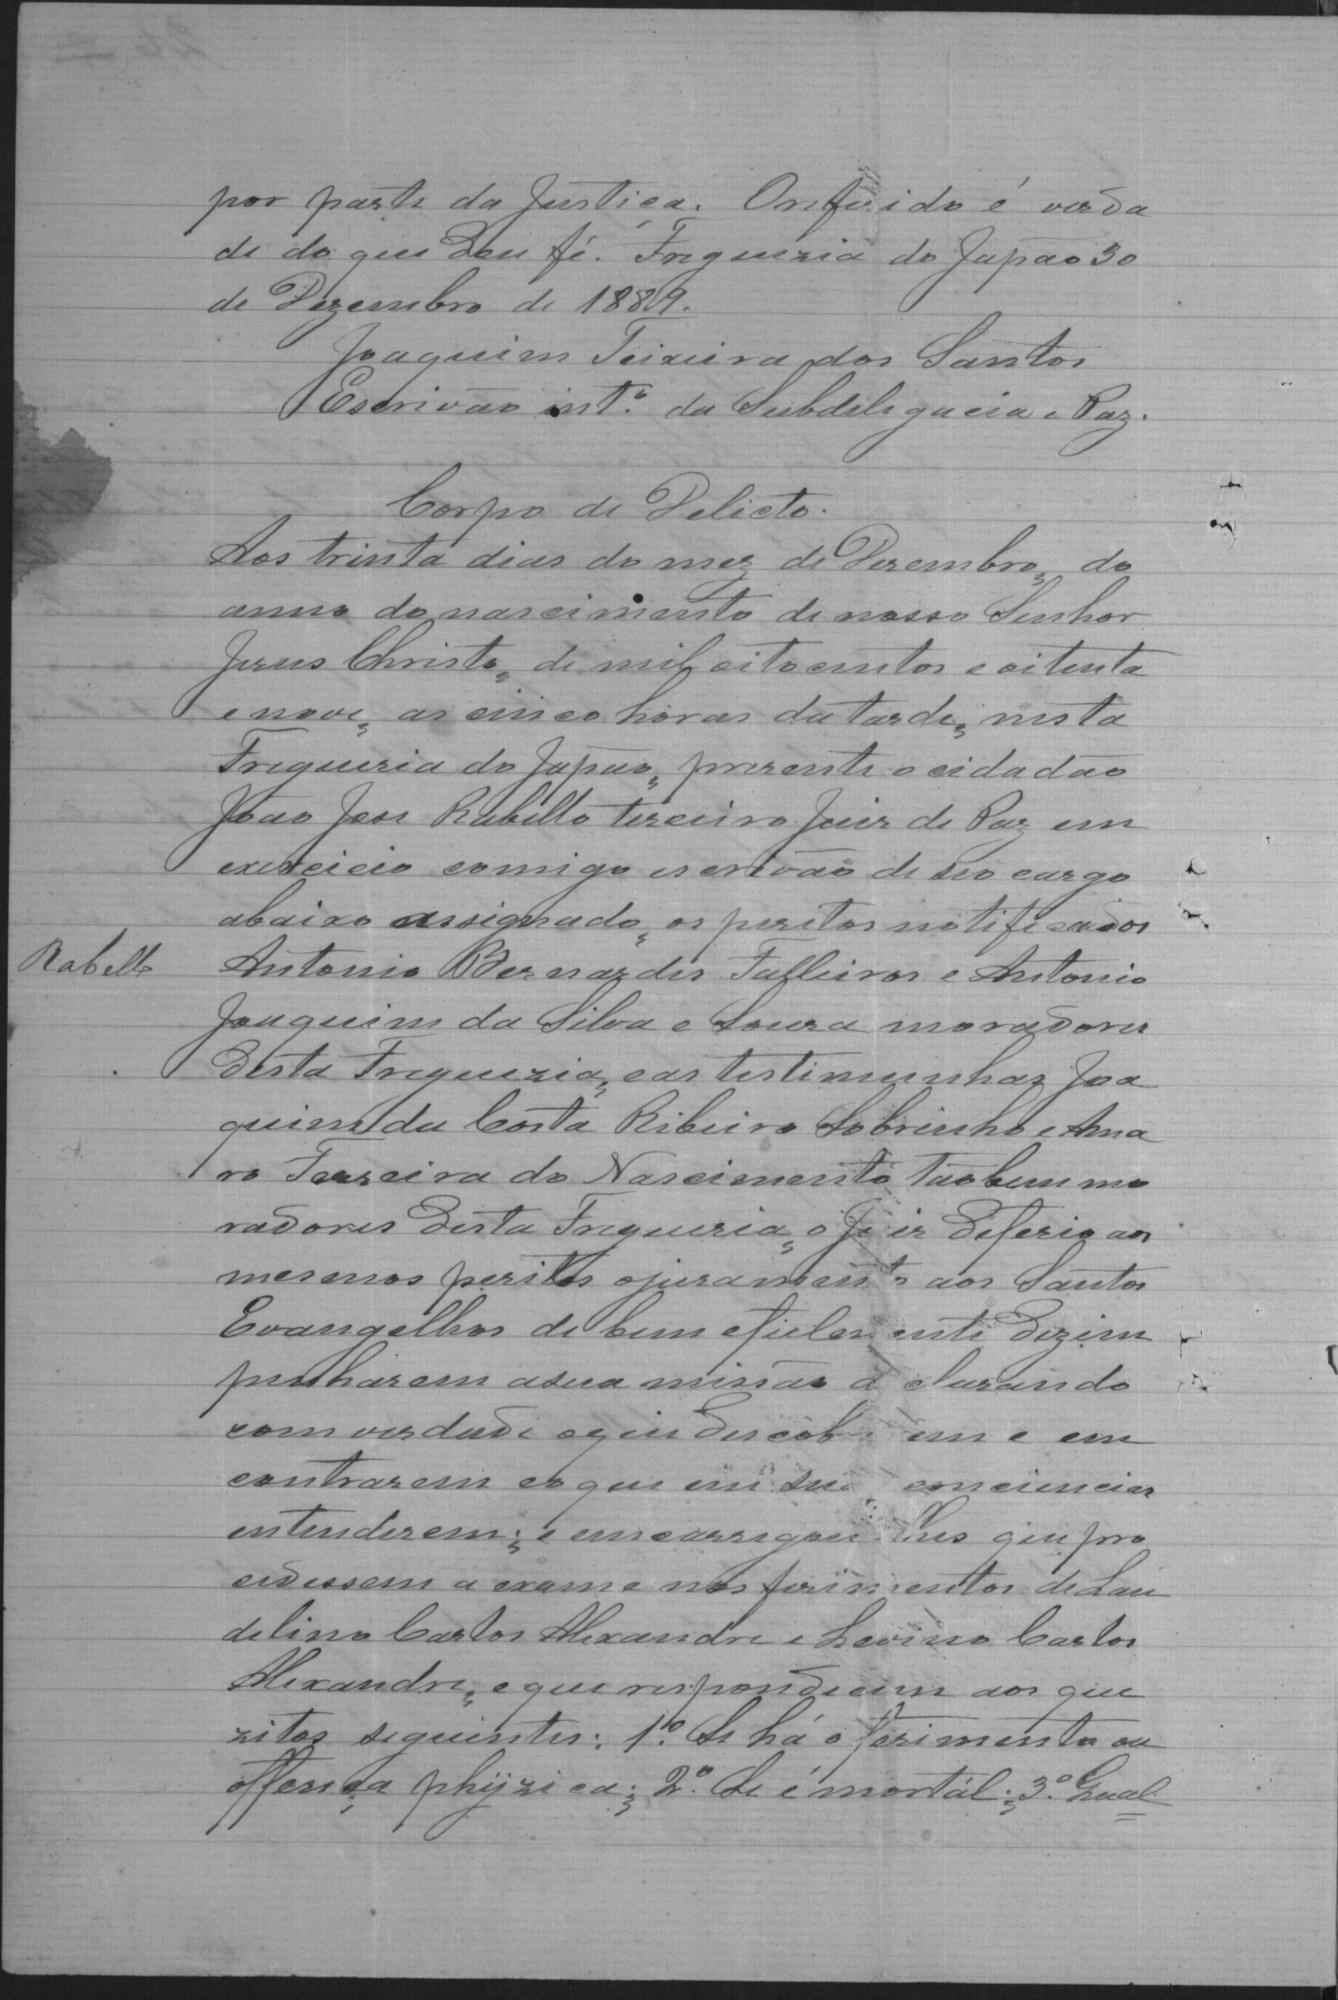 por parte da Justiça. O referido é verda
de do que dou fé. Freguezia do Japão 30
de Dezembro de 1889.
Joaquim Teixeira dos Santos
Escrivão intº. da Subdelegacia e Paz.
Corpo de Delicto.
Aos trinta dias do mez de Dezembro, do
anno do nascimento de nosso Senhor
Jesus Christo, de mil oitocentos e oitenta
e nove, as cinco horas da tarde, nesta
Freguezia do Japão, prezente o cidadão
João Jose Rabello terceiro Juiz de Paz em
exercicio comigo escrivão de seo cargo
abaixo assignado, os peritos notificados
Rabello
Antonio Bernardes Falleiros e Antonio
Joaquim da Silva e Souza moradores
desta Freguezia, e as testimunhas Joa
quim da Costa Ribeiro Sobrinho e Ama
ro Ferreira do Nascimento tãobem mo
radores desta Freguezia, o Juiz deferio aos
mesmos peritos o juramento aos Santos
Evangelhos de bem e fielmente dezim
penharem a sua missão declarando
com verdade o que descobrirem e em
contrarem e o que em sua conciencias
entenderem; e emcarregou-lhes que pro
cedessem a exame nos ferimentos de Lau
delino Carlos Alexandre e Levino Carlos
Alexandre, e que respondecem aos que
zitos seguintes: 1º. Se há o ferimento ou
offensa phÿzica; 2º. Se é mortál; 3º. Qual